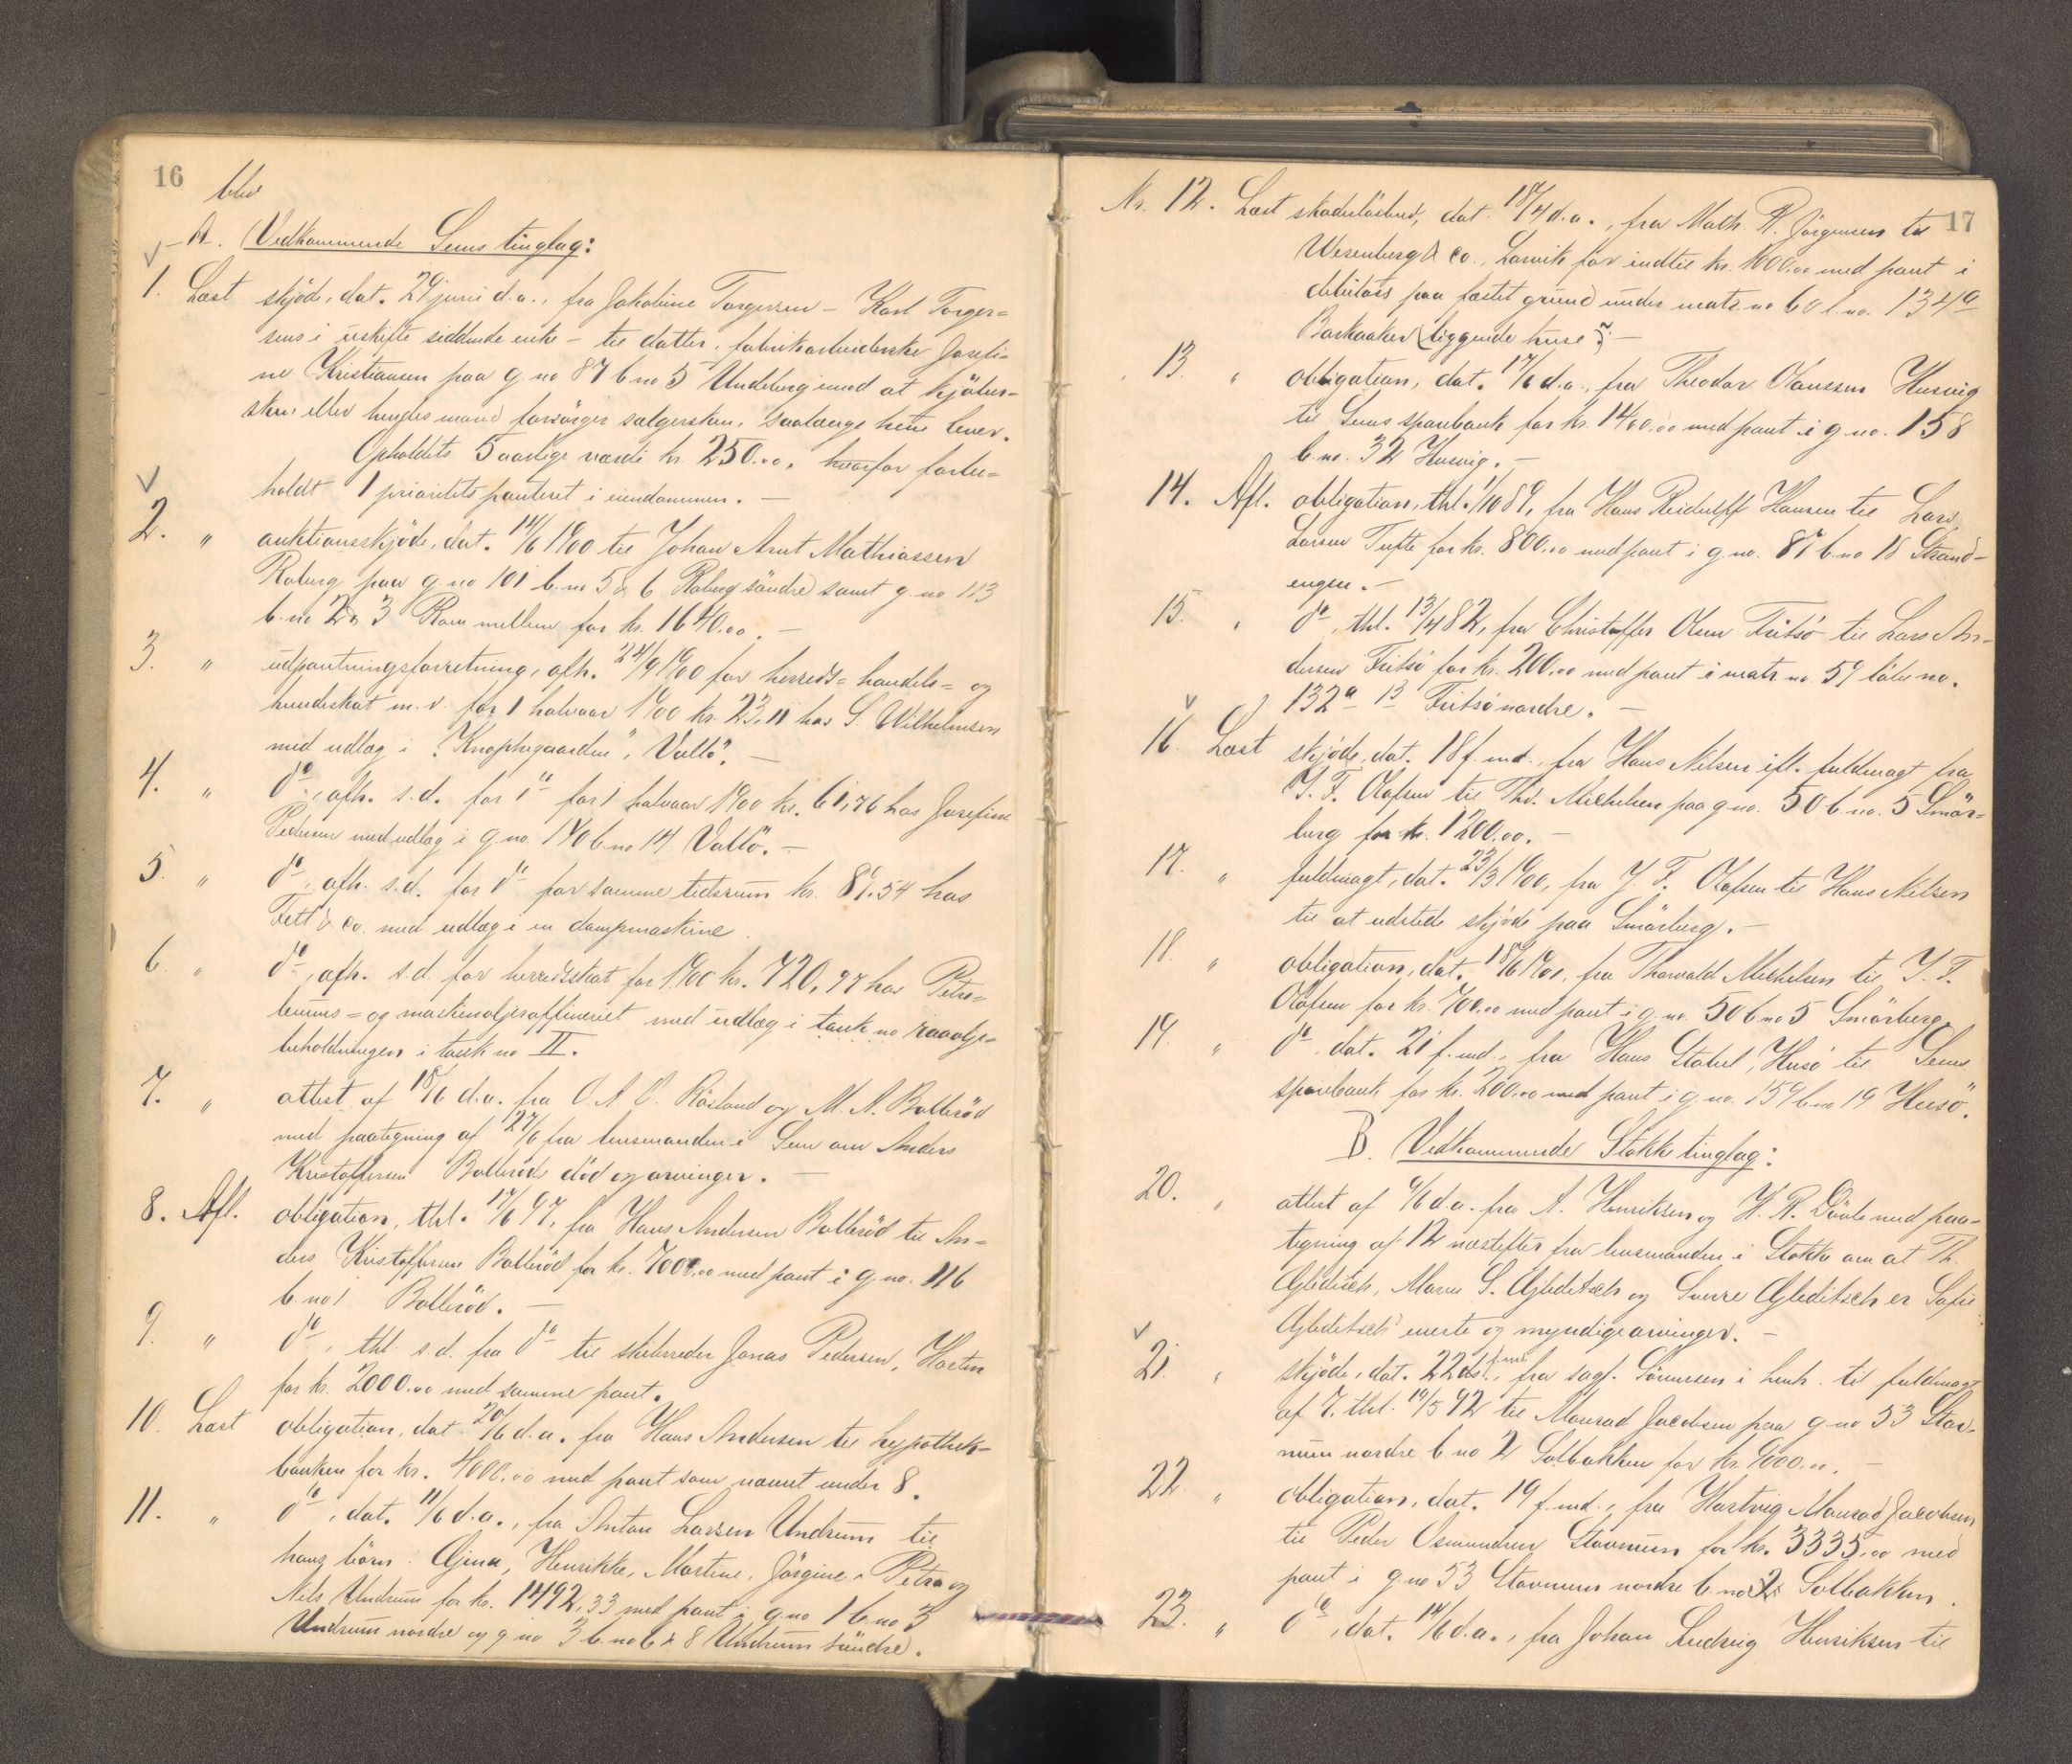 16
blev
A. Vedkommende Sems tinglag:
1. Læst skjöde, dat. 29 juni d.a., fra Jakobine Torgersen - Karl Torger=
sens i uskifte siddende enke - til datter, fabrikarbeiderske Josefi-
ne Kristiansen paa g. no 87 b. no 5 Undeling mod at kjöber-
sken eller hendes mand forsörger sælgersken, saalænge hun lever.
Opholdets 5 aarlige værdi kr. 250.00, hvorfor forbe=
holdt 1 prioritets panteret i eiendommen. -
2. " auktionsskjöde, dat. 14/6 1900 til Johan Arnt Mathiassen
Roberg paa g. no 101 b. no 5 & 6 Roberg söndre samt g. no 113
b. no 2 & 3 Ram mellem for kr. 1640.00. -
3. " udpantningsforretning, afh. 24/9 1900 for herreds= handels= og
hundeskat m. v. for 1 halvaar 1900 kr. 23,11 hos S. Wilhelmsen
med udlæg i "Knophsgaarden", Vallö. -
4. " do, afh. s.d. for do for 1 halvaar 1900 kr. 61,76 hos Josefine
Pedersen med udlæg i g. no. 140 b. no 14 Vallö. -
5. " do, afh. s.d. for do for samme tidsrum kr. 89.54 hos
Fett & Co. med udlæg i en dampmaskine.
6. " do, afh. s.d. for herredsskat for 1900 kr. 720,97 hos Petro=
leums= og maskinoljeraffineriet med udlæg i tank no raaolje=
beholdningen i tank no II.
7. " attest af 18/6 d.a. fra O. A. O. Råsland og M. A. Bolleröd
med paategning af 27/6 fra lensmanden i Sem om Anders
Kristoffersen Bolleröds död og arvinger. -
8. Afl. obligation, thl. 17/6 97, fra Hans Andersen Bolleröd til An=
ders Kristoffersen Bolleröd for kr. 7000,00 med pant i g. no. 116
b. no 1 Bolleröd. -
9. " do, thl. s.d. fra do til skibsreder Jonas Pedersen, Horten
for kr. 2000.00 med samme pant.
10. Læst obligation, dat. 20/6 d.a. fra Hans Andersen til hypothek-
banken for kr. 4000.00 med pant som nævnt under 8.
11. " do, dat. 11/6 d.a., fra Anton Larsen Undrum til
hans börn: Gjina, Henrikke, Martine, Jörgine, Petra og
Nils Undrum for kr. 1492,33 med pant i g. no 1 b. no 3
Undrum nordre og g. no 3 b. no 6 & 8 Undrum söndre.
17
Nr. 12. Læst skadeslösbrev, dat. 18/4 d.a., fra Math. R. Jörgensen til
Wesenberg & Co., Larvik for indtil kr. 1000.00 med pant i
debitors paa fæstet grund under matr. no 60 l. no. 134a
Barkaaker liggende huse. -
13. " obligation, dat. 17/6 d.a., fra Theodor Olaussen Husvig
til Sems sparebank for kr. 1400.00 med pant i g. no. 158
b. no. 32 Husvig. -
14. Afl. obligation, thl. 1/10 89, fra Hans Reidulff Hansen til Lars
Larsen Tufte for kr. 800.00 med pant i g. no. 87 b. no 18 Strand-
engen. -
15. " do, thl. 13/4 82, fra Christoffer Olsen Fritsö til Lars An-
dersen Fritsö for kr. 200.00 med pant i matr. no. 59 löbe no.
132a 13 Fritsö nordre. -
16. Læst skjöde, dat. 18 f. md., fra Hans Nilsen ifl. fuldmagt fra
J. F. Olafsen til Thv. Mikkelsen paa g. no. 50 b. no. 5 Smör=
berg for kr. 1200.00. -
17. " fuldmagt, dat. 23/3 1900, fra J. F. Olafsen til Hans Nilsen
til at udstede skjöde paa Smörberg. -
18. " obligation, dat. 18/6 1901, fra Thorvald Mikkelsen til J. F.
Olafsen for kr. 700.00 med pant i g. no. 50 b. no 5 Smörberg.
19. " do dat. 21 f. md., fra Hans Stabel, Husö til Sems
sparebank for kr. 200.00 med pant i g. no. 159 b. no 19 Husö.
B. Vedkommende Stokke tinglag:
20. " attest af 9/6 d.a. fra A. Henriksen og H. R. Dåvle med paa=
tegning af 12 næstefter fra lensmanden i Stokke om at Th.
Gjleditsch, Maren S. Gjleditsch og Sverre Gjleditsch er Sofie
Gjleditsch' eneste og myndige arvinger. -
21. " skjöde, dat. 22 ds. f. md., fra sagf. Sörensen i henh. til fuldmagt
af 7. thl. 19/5 92 til Monrad Jacobsen paa g. no 53 Stav-
num nordre b. no 2 Solbakken for kr. 9000.00. -
22. " obligation, dat. 19 f. md., fra Hartvig Monrad Jacobsen
til Peder Osmundsen Stavnum for kr. 3335,00 med
pant i g. no 53 Stavnum nordre b. no 2 Solbakken.
23. " do, dat. 14/6 d.a., fra Johan Ludvig Henriksen til